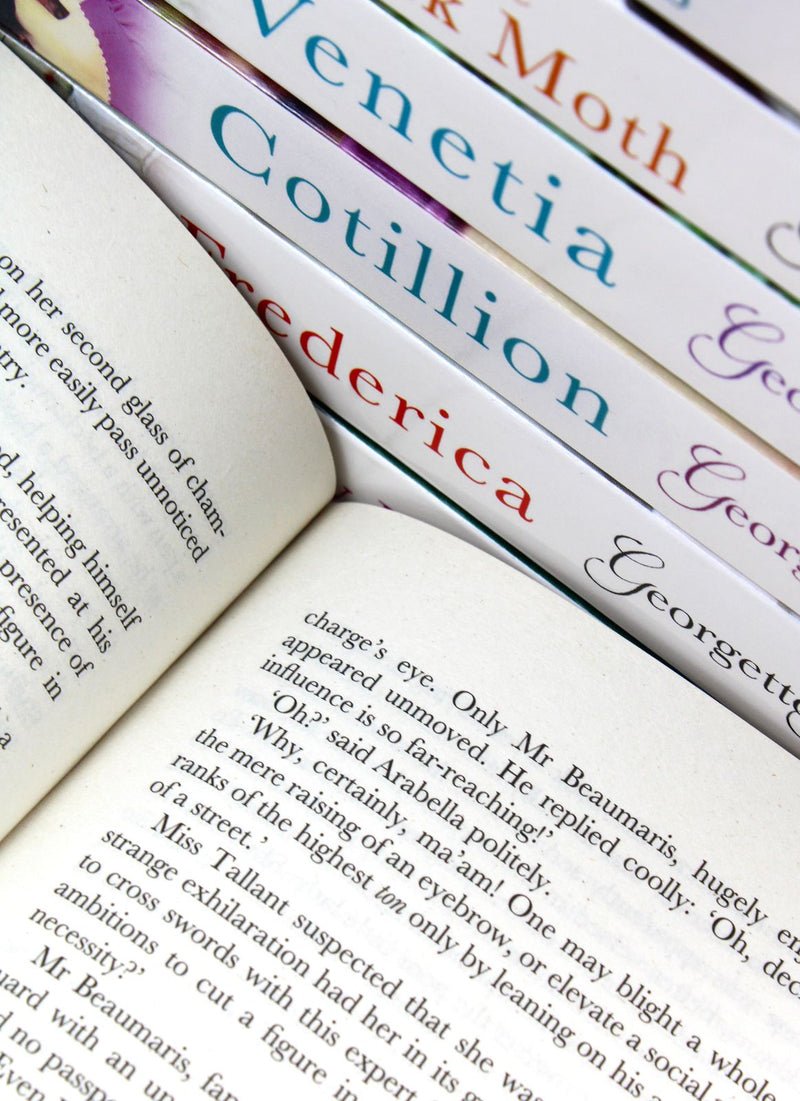 k Moth
Venetia
Cotillion
Frederica
Georgette
on her second glass of cham-
more easily pass unnoticed
helping himself
presented at his
presence of
figure in
a
charge's eye. Only Mr Beaumaris, hugely
appeared unmoved. He replied coolly: 'Oh,
influence is so far-reaching!'
'Oh?' said Arabella politely.
'Why, certainly, ma'am! One may blight a whole
the mere raising of an eyebrow, or elevate a social
ranks of the highest ton only by leaning on his
of a street.'
Miss Tallant suspected that she was
strange exhilaration had her in its
to cross swords with this expert
ambitions to cut a figure in
necessity?'
Mr Beaumaris,
with an
no
Even